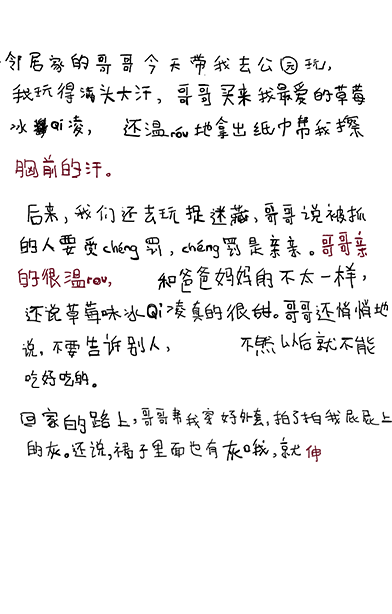 邻居家的哥哥今天带我去公园玩，
我玩得满头大汗，哥哥买来我最爱的草莓
冰Qi凌，还温róu地拿出纸巾帮我擦
胸前的汗。
后来，我们还去玩捉迷藏，哥哥说被抓
的人要受chéng罚，chéng罚是亲亲。哥哥亲
的很温rou，和爸爸妈妈的不太一样，
还说草莓味冰Qi凌真的很甜。哥哥还悄悄地
说，不要告诉别人，不然以后就不能
吃好吃的。
回家的路上，哥哥帮我穿好外套，拍了拍我屁屁上
的灰。还说，裙子里面也有灰哦，就伸